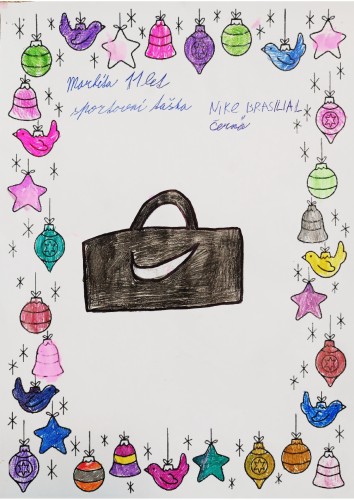 Markéta 11 let
sportovní taška
NIKE BRASILIAL
černá